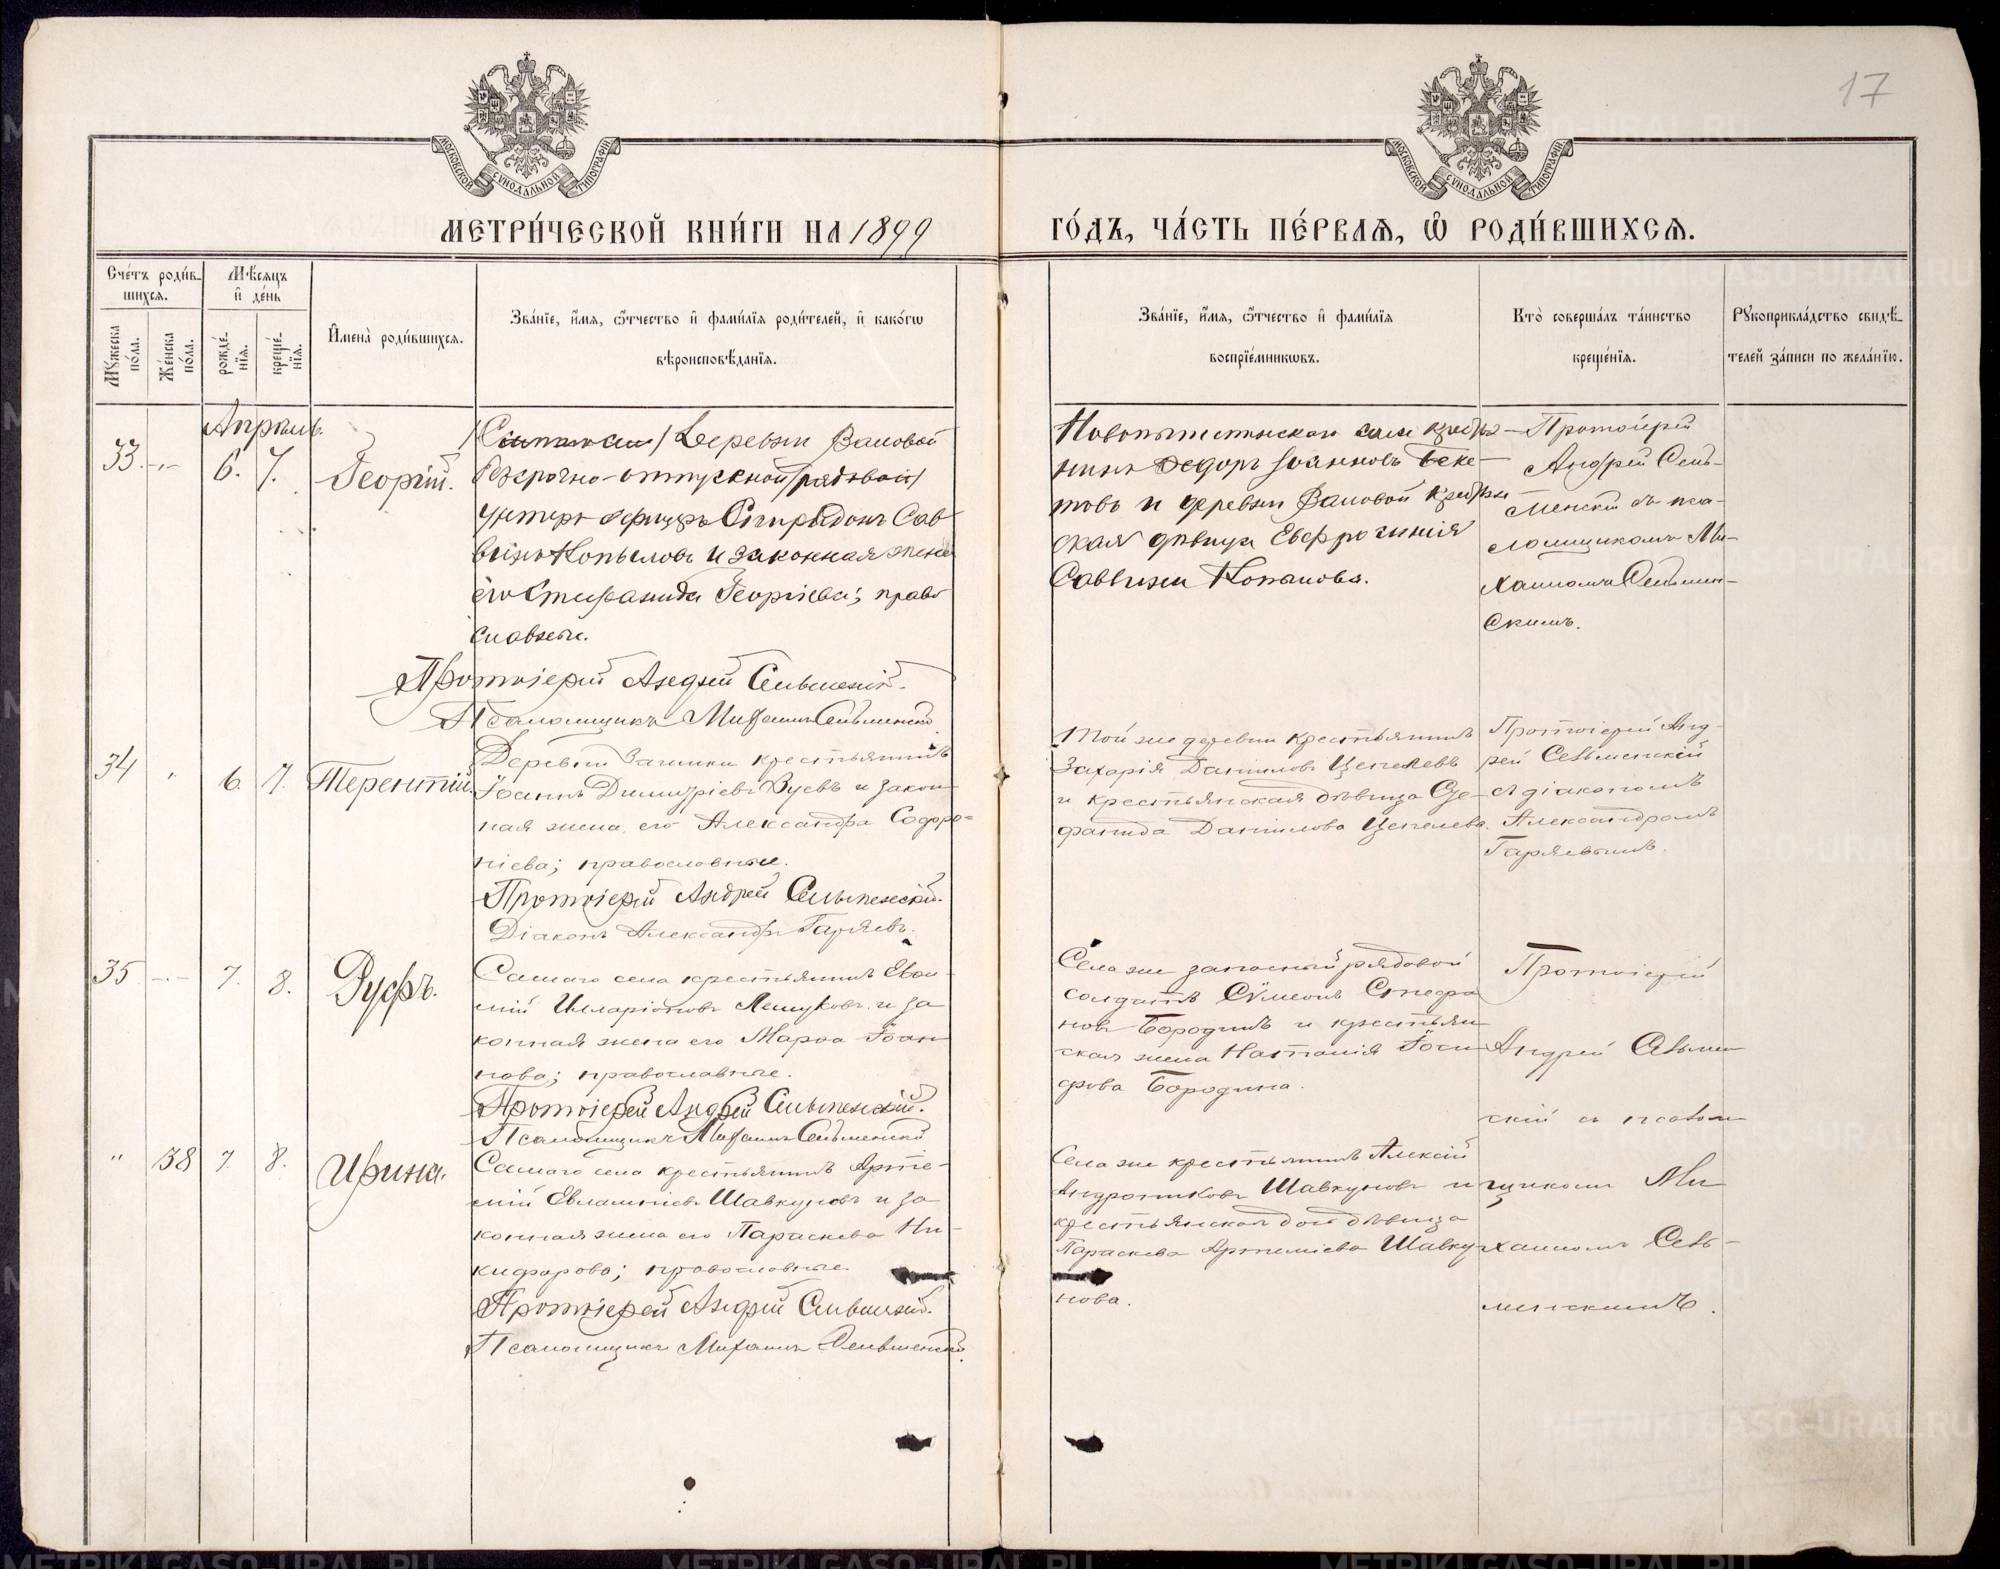 17
МОСКОВСКОЙ СѴНОДАЛЬНОЙ ТИПОГРАФІИ
МОСКОВСКОЙ СѴНОДАЛЬНОЙ ТИПОГРАФІИ
МЕТРИ́ЧЕСКОЙ КНИ́ГИ НА 1899
ГО́ДЪ, ЧА́СТЬ ПЕ́РВАѦ, Ѡ РОДИ́ВШИХСѦ.
Сче́тъ роди́в-
шихсѧ.
Мꙋжеска по́ла.
Же́нска по́ла.
Мѣ́сѧцъ
и҆ де́нь
рожде́нїѧ.
креще́нїѧ.
И҆мена̀ роди́вшихсѧ.
Зва́нїе, и҆́мѧ, ѻ҆́тчество и҆ фамѝлїѧ роди́телей, и҆ како́гѡ
вѣроисповѣ́данїѧ.
Зва́нїе, и҆́мѧ, ѻ҆́тчество и҆ фамѝлїѧ
воспрїе́мникѡвъ.
Кто̀ соверша́лъ та́инство
креще́нїѧ.
Рꙋкоприкла́дство свидѣ́-
телей за́писи по жела́нїю.
Апрѣль.
33. 6. 7. Георгій.
Деревни Валовой
безсрочно-отпускной (рядовой)
унтеръ офицеръ Спиридонъ Сав
винъ Копыловъ и законная жена
его Стефанида Георгіева; право
славные.
Протоіерей Андрей Сельменскій.
Псаломщикъ Михаилъ Сельменскій
села кресть-
нинъ Ѳедоръ Іоанновъ Беке-
товъ и деревни Валовой крестьян
ская дѣвица Евфросинія
Саввина Копылова.
Протоіерей
Андрей Сель-
менскій съ пса-
ломщикомъ Ми-
хаиломъ Сельмен-
скимъ.
34 " 6. 7. Терентій.
Деревни крестьянинъ
Іоаннъ Димитріевъ Зуевъ и закон-
ная жена его Александра Софро-
ніева; православные.
Протоіерей Андрей Сельменскій.
Діаконъ Александръ Гаряевъ.
Той же деревни крестьянинъ
Захарія Даниловъ Цепелевъ
и крестьянская дѣвица Сте-
фанида Данилова Цепелева.
Протоіерей Анд-
рей Сельменскій
съ діакономъ
Александромъ
Гаряевымъ.
35 7. 8. Руфъ.
Самаго села крестьянинъ Евѳи-
мій Иларіоновъ и за
конная жена его Марѳа Іоан
нова; православные.
Протоіерей Андрей Сельменскій.
Псаломщикъ Михаилъ Сельменскій
Села же запасный рядовой
солдатъ Сѵмеонъ Стефа
новъ Бородинъ и крестьян
ская жена Наталія
Бородина.
Протоіерей
Андрей Сельмен
скій съ псалом
щикомъ Ми
хаиломъ Сель-
менскимъ.
" 38 7. 8. Ирина.
Самаго села крестьянинъ Арте-
мій Евлампіевъ Шавкуновъ и за
конная жена его Параскева Ни-
кифорова; православные.
Протоіерей Андрей Сельменскій.
Псаломщикъ Михаилъ Сельменскій.
Села же крестьянинъ Алексій
Андрониковъ Шавкуновъ и
крестьянская дочь дѣвица
Параскева Артеміева Шавку-
нова.
METRIKI.GASO-URAL.RU